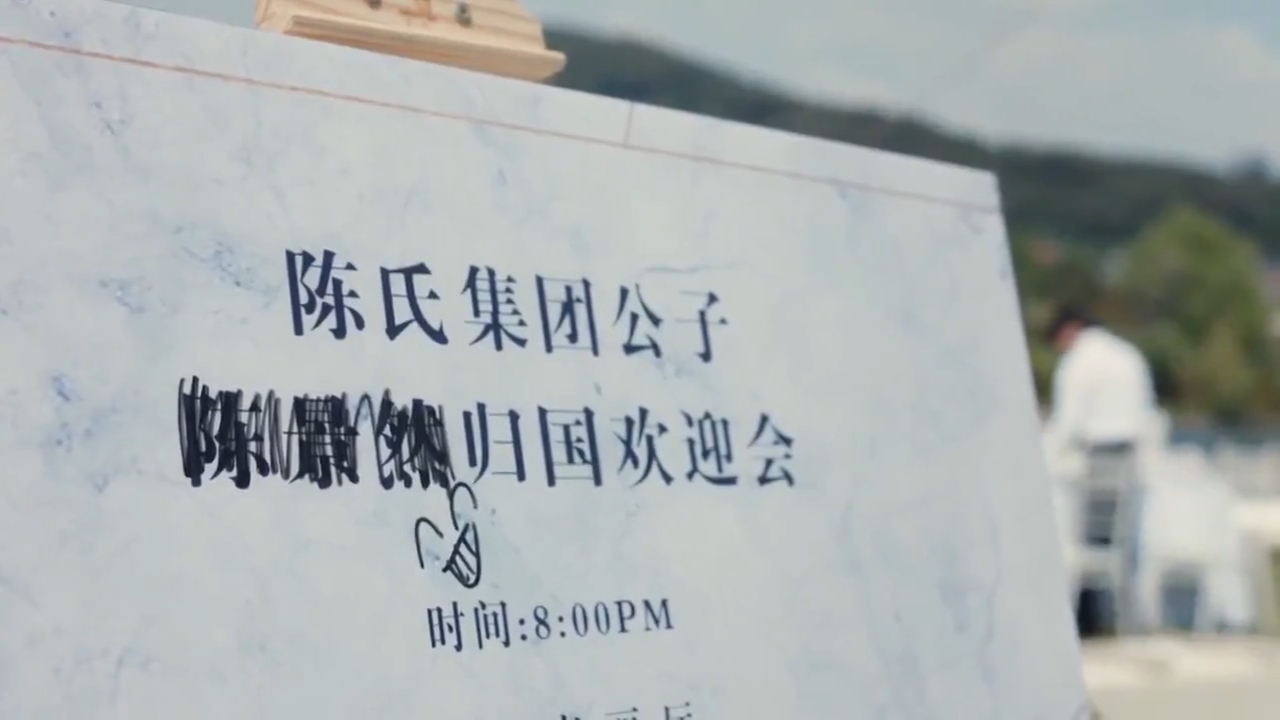 陈氏集团公子
陈景然归国欢迎会
时间:8:00PM